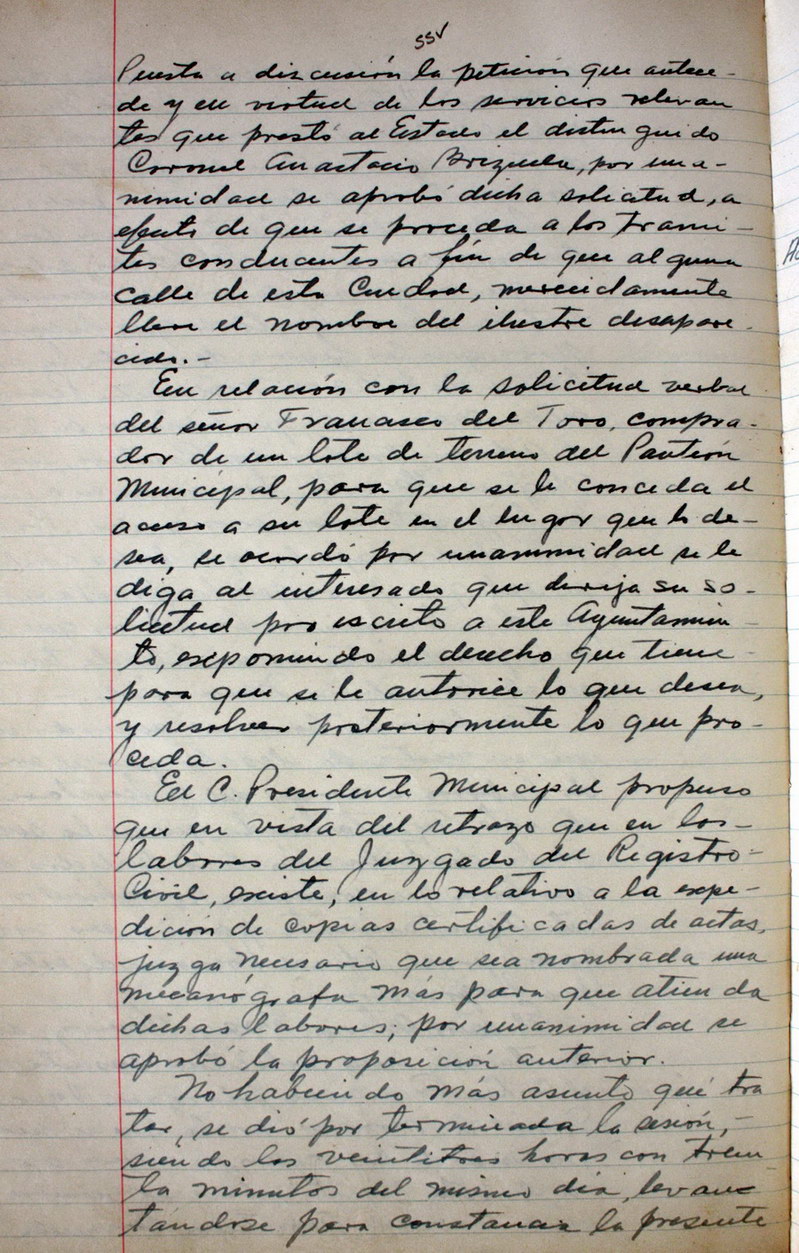 Puesta a discusión la petición que antece-
de y en virtud de los servicios relevan
tes que prestó al Estado el distinguido
Coronel Anastacio Brizuela, por una-
nimidad se aprobó dicha solicitud, a
efecto de que se proceda a los trami-
tes conducentes a fin de que alguna
calle de esta Ciudad, merecidamente
lleve el nombre del ilustre desapare-
cido.-
En relación con la solicitud verbal
del señor Francisco del Toro, compra-
dor de un lote de terreno del Panteón
Municipal, para que se le conceda el
acceso a su lote en el lugar que lo de-
sea, se acordó por unanimidad se le
diga al interesado que dirija su so-
licitud por escrito a este Ayuntamien-
to, exponiendo el derecho que tiene
para que se le autorice lo que desea,
y resolver posteriormente lo que pro-
ceda.
El C. Presidente Municipal propuso
que en vista del retrazo que en las-
labores del Juzgado del Registro-
Civil, existe, en lo relativo a la expe-
dición de copias certificadas de actas,
juzga necesario que sea nombrada una
mecanógrafa más para que atienda
dichas labores; por unanimidad se
aprobó la proposición anterior.
No habiendo más asunto qué tra
tar, se dió por terminada la sesión,-
siendo las veintitres horas con trein
ta minutos del mismo día, levan
tándose para constancia la presente